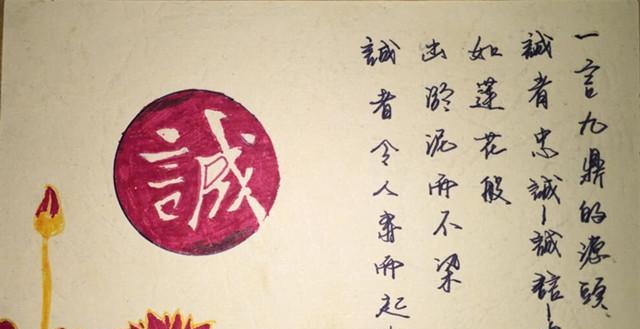 一言九鼎的源頭
誠者忠誠-誠
如蓮花般
出淤泥而不染
誠者令人而起
誠